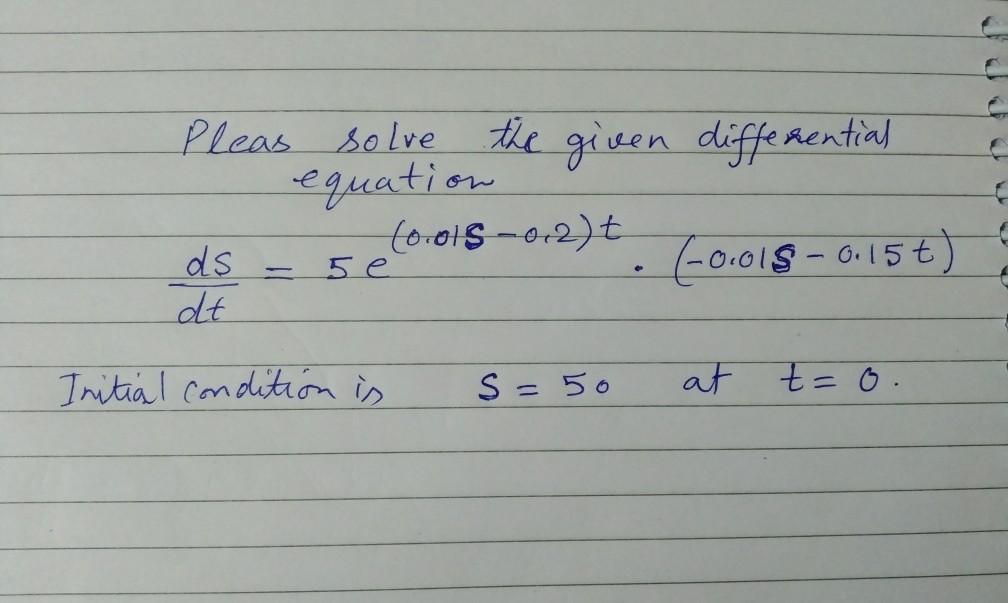 Pleas solve the given differential
equation
ds/dt = 5 e^(0.01S - 0.2)t . (-0.01S - 0.15t)
Initial condition is S = 50 at t = 0.